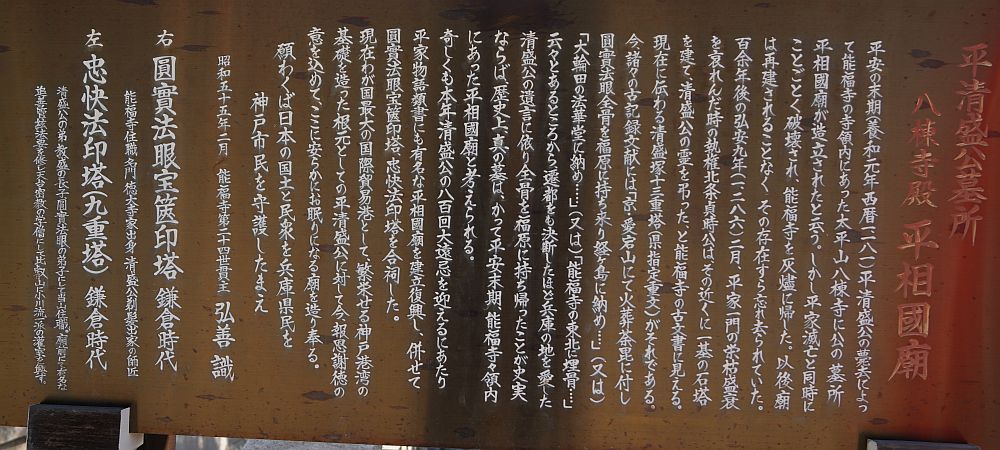 平清盛公墓所
八棟寺殿 平相國廟
平安の末期養和元年西暦一一八一平清盛公の薨去によっ
て能福寺の寺領内にあった太平山八棟寺に公の墓所
平相國廟が造立されたと云う。しかし平家滅亡と同時に
ことごとく破壊され、能福寺も灰燼に帰した。以後、廟
は再建されることなく、その存在すら忘れ去られていた。
百余年後の弘安九年(一二八六)二月、平家一門の栄枯盛衰
を哀れんだ時の執権北条貞時公は、その近くに一基の石塔
を建て、清盛公の霊を弔った、と能福寺の古文書に見える。
現在に伝わる清盛塚十三重塔(県指定重文)がそれである。
今、諸々の古記録文献には「京、愛宕山にて火葬荼毘に付し
圓實法眼全骨を福原に持ち来り経ヶ島に納め…」(又は)
「大輪田の法華堂に納め…」(又は)「能福寺の東北に埋骨…」
云々とあるところから遷都を決断したほど兵庫の地を愛した
清盛公の遺言に依り全骨を福原に持ち帰ったことが史実
ならば、歴史上真の墓は、かつて平安末期、能福寺々領内
にあった平相國廟と考えられる。
奇しくも本年、清盛公の八百回大遠忌を迎えるにあたり
平家物語類書にも有名な平相國廟を建立復興し、併せて
圓實法眼宝篋印塔、忠快法印塔を合祠した。
現在わが国最大の国際貿易港として、繁栄せる神戸港湾の
基礎を造った根元としての平清盛公に対して今、報恩謝徳の
意を込めて、ここに安らかにお眠りになる廟を造り奉る。
願わくば日本の国土と民衆を兵庫県民を
神戸市民を守護したまえ
昭和五十五年二月 能福寺第二十四世貫主 弘善 識
右 圓實法眼宝篋印塔 鎌倉時代
能福寺住職、名門、徳大寺家出身、清盛公剃髪出家の師匠
左 忠快法印塔(九重塔) 鎌倉時代
清盛公の弟、教盛の長子、圓實法眼の弟子にて当山住職、